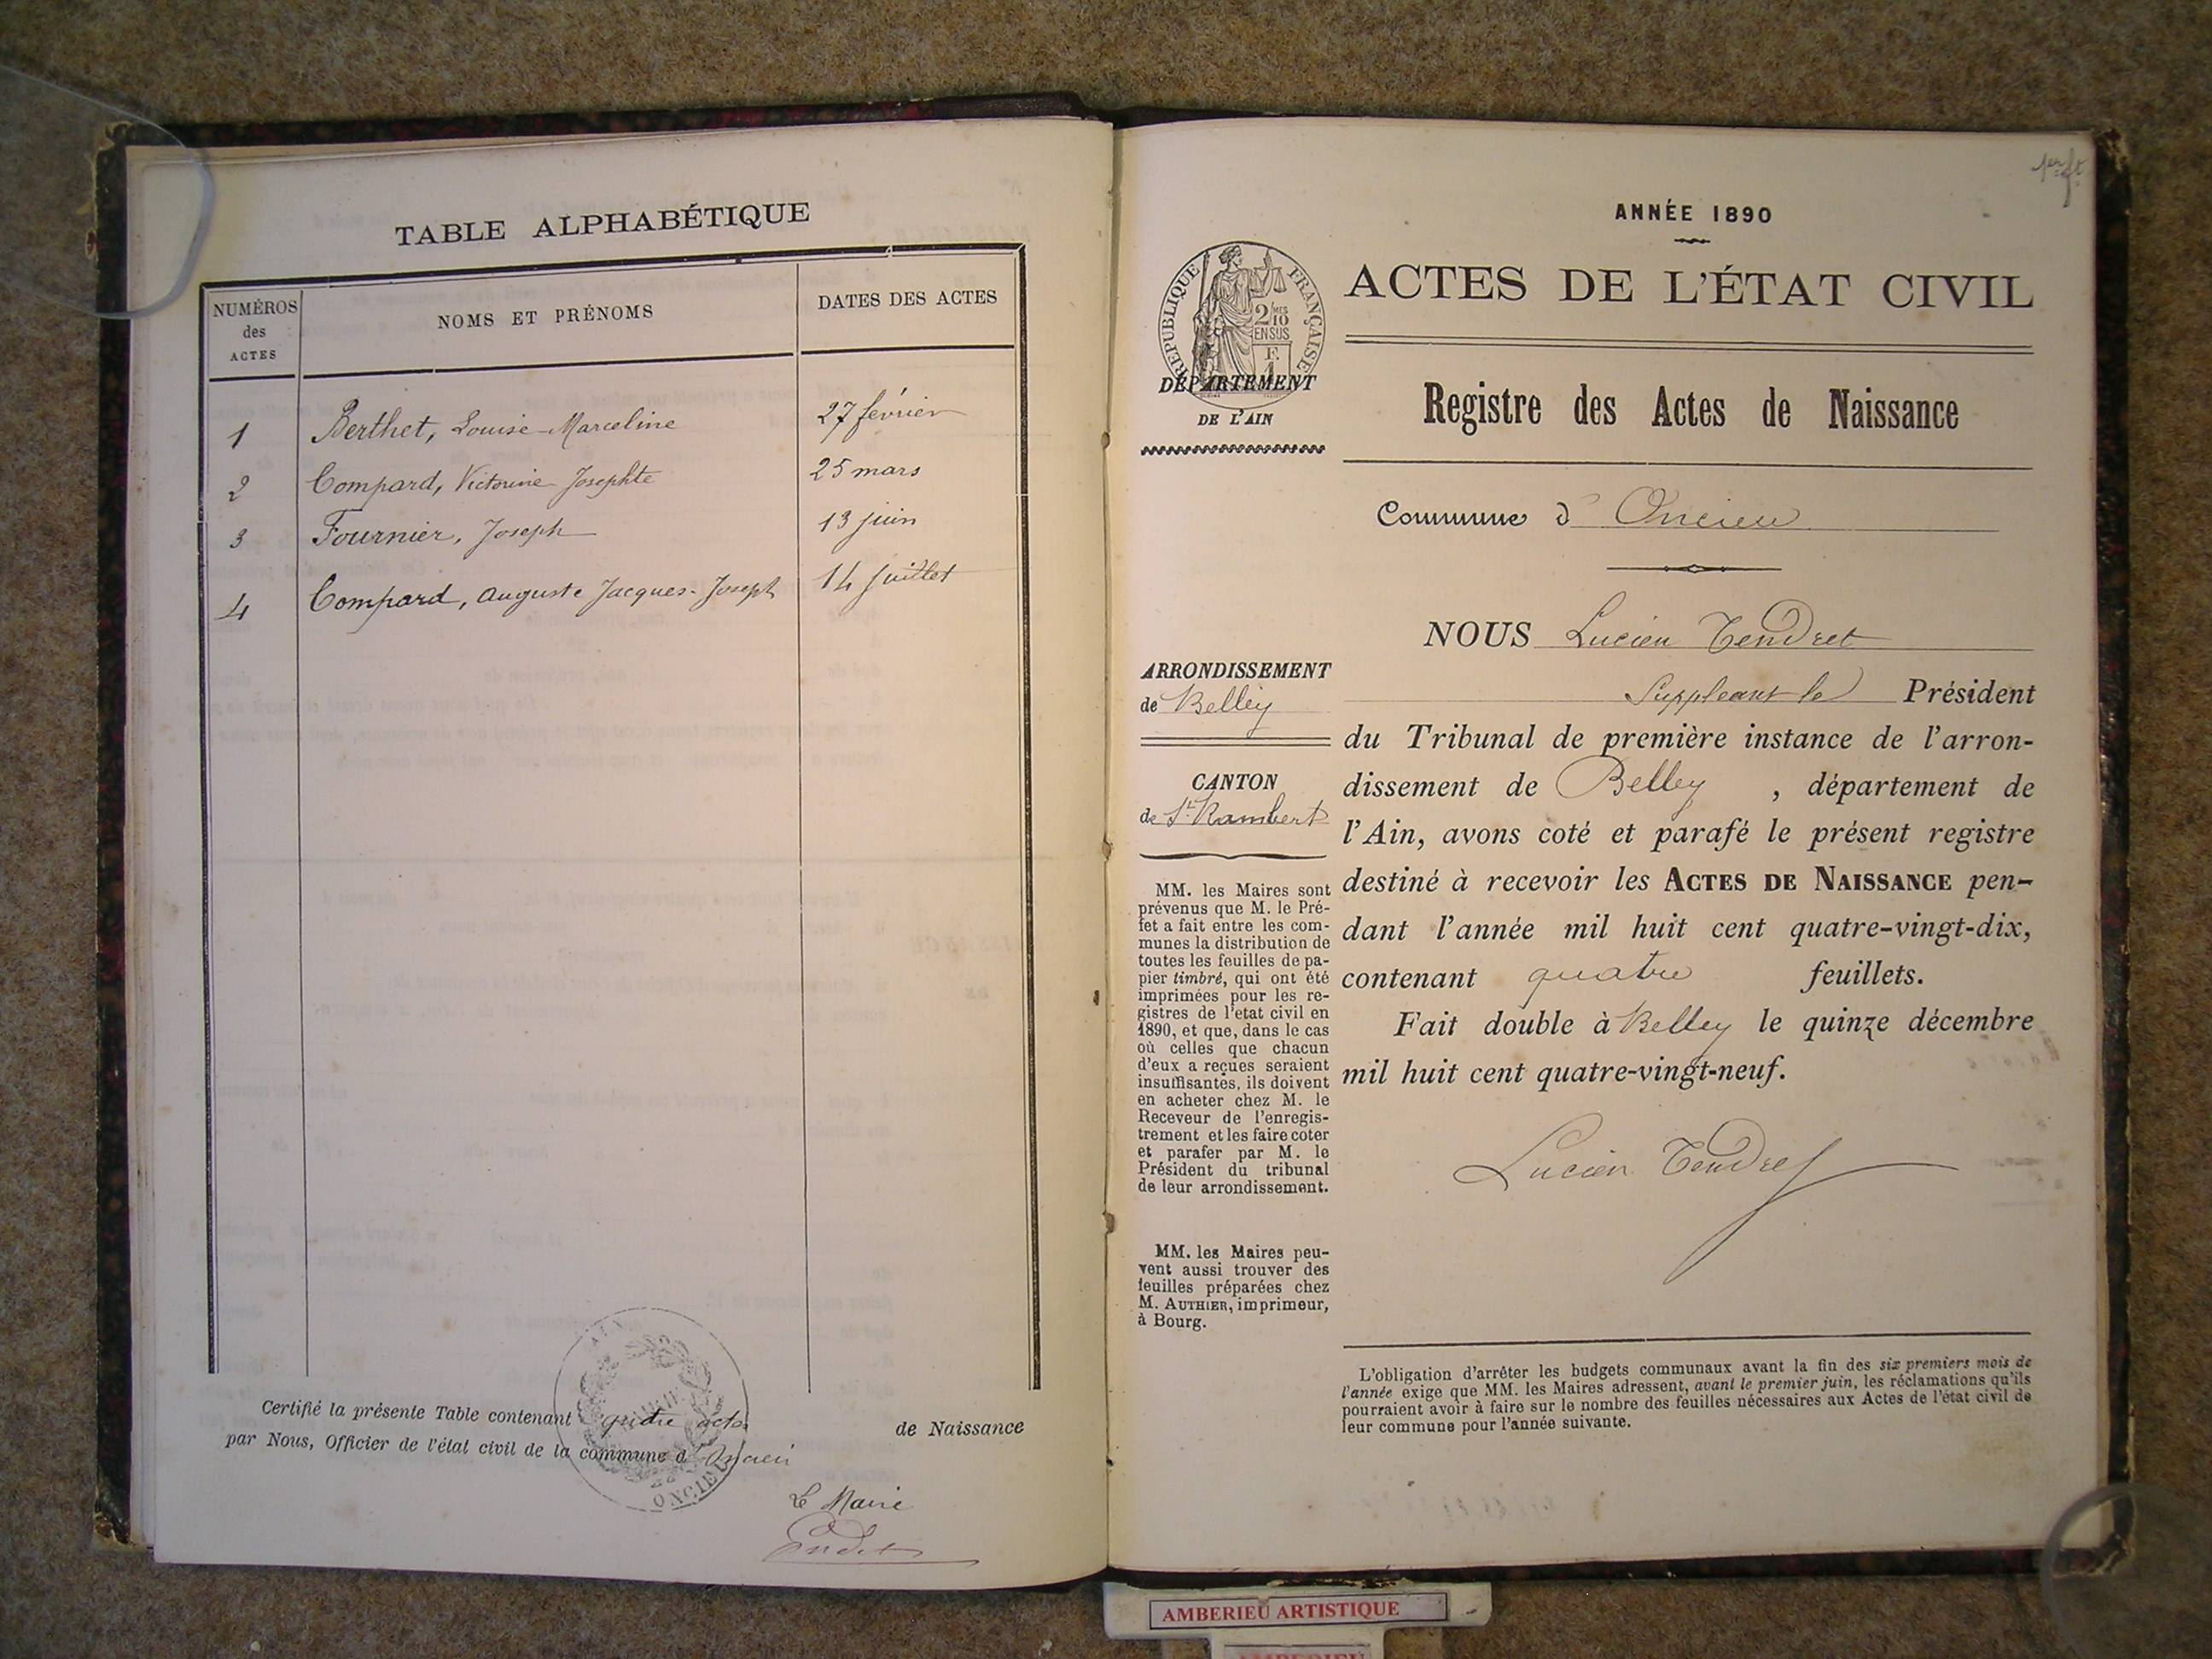 TABLE ALPHABÉTIQUE
NUMÉROS
des
ACTES
NOMS ET PRÉNOMS
DATES DES ACTES
1 Berthet, Louise-Marceline 27 février
2 Compard, Victorine Josephte 25 mars
3 Fournier, Joseph 13 juin
4 Compard, Auguste Jacques-Joseph 14 juillet
Certifié la présente Table contenant quatre actes de Naissance
par Nous, Officier de l'état civil de la commune d'Oncieu
AIN
MAIRIE
ONCIEU
Le Maire
1er ft
ANNÉE 1890
ACTES DE L'ÉTAT CIVIL
RÉPUBLIQUE FRANÇAISE
2/10mes
EN SUS
F.
1
DÉPARTEMENT
DE L'AIN
Registre des Actes de Naissance
Commune d'Oncieu
NOUS Lucien Tendret
Suppléant le Président
ARRONDISSEMENT
de Belley
CANTON
de St Rambert
du Tribunal de première instance de l'arron-
dissement de Belley , département de
l'Ain, avons coté et parafé le présent registre
destiné à recevoir les ACTES DE NAISSANCE pen-
dant l'année mil huit cent quatre-vingt-dix,
contenant quatre feuillets.
Fait double à Belley le quinze décembre
mil huit cent quatre-vingt-neuf.
Lucien Tendret
MM. les Maires sont
prévenus que M. le Pré-
fet a fait entre les com-
munes la distribution de
toutes les feuilles de pa-
pier timbré, qui ont été
imprimées pour les re-
gistres de l'etat civil en
1890, et que, dans le cas
où celles que chacun
d'eux a reçues seraient
insuffisantes, ils doivent
en acheter chez M. le
Receveur de l'enregis-
trement et les faire coter
et parafer par M. le
Président du tribunal
de leur arrondissement.
MM. les Maires peu-
vent aussi trouver des
feuilles préparées chez
M. AUTHIER, imprimeur,
à Bourg.
L'obligation d'arrêter les budgets communaux avant la fin des six premiers mois de
l'année exige que MM. les Maires adressent, avant le premier juin, les réclamations qu'ils
pourraient avoir à faire sur le nombre des feuilles nécessaires aux Actes de l'état civil de
leur commune pour l'année suivante.
AMBERIEU ARTISTIQUE
AMBERIEU